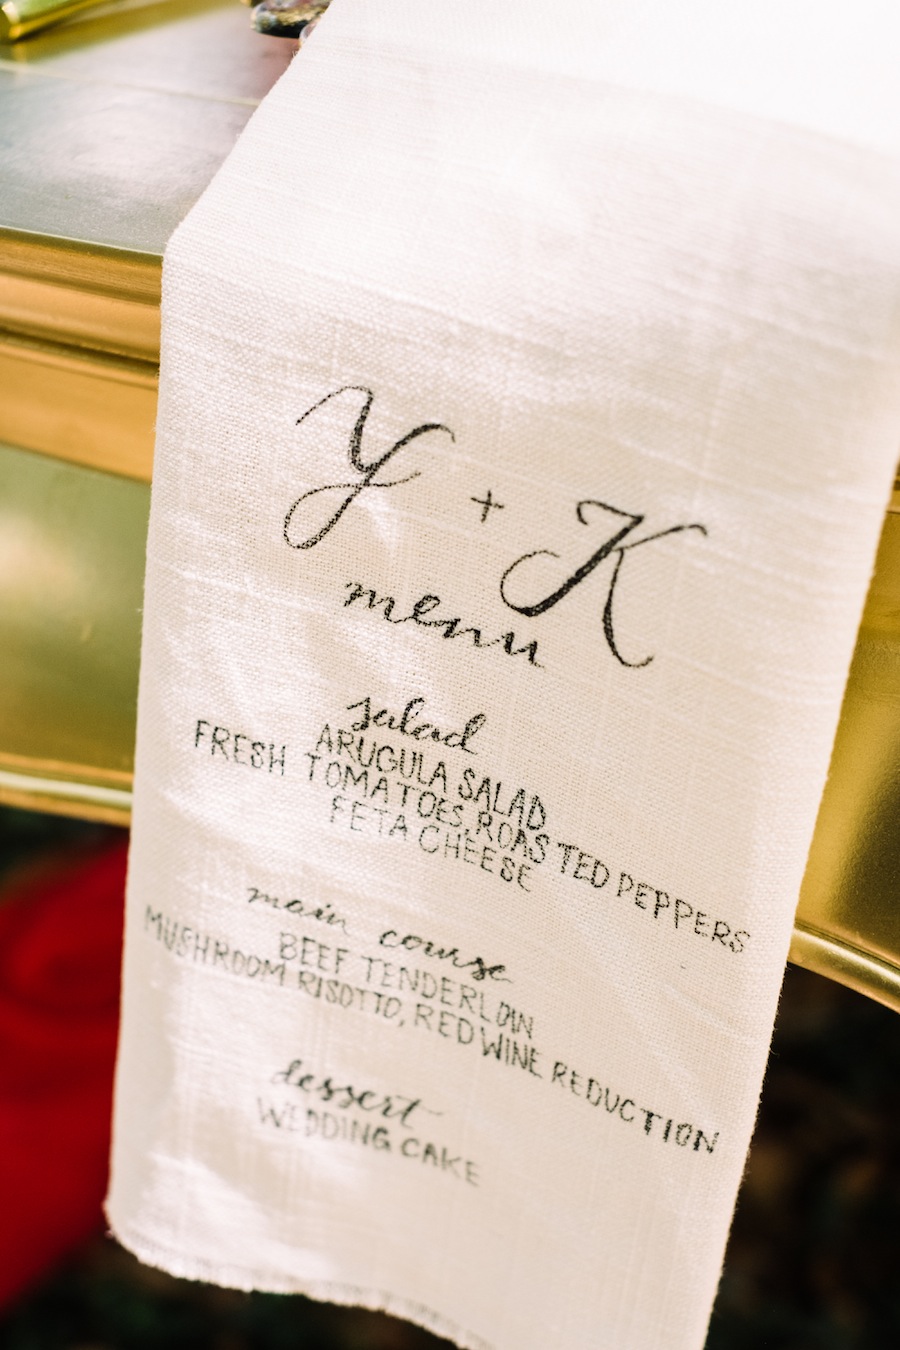 Y + K
menu
salad
ARUGULA SALAD
FRESH TOMATOES, ROASTED PEPPERS
FETA CHEESE
main course
BEEF TENDERLOIN
MUSHROOM RISOTTO, RED WINE REDUCTION
dessert
WEDDING CAKE